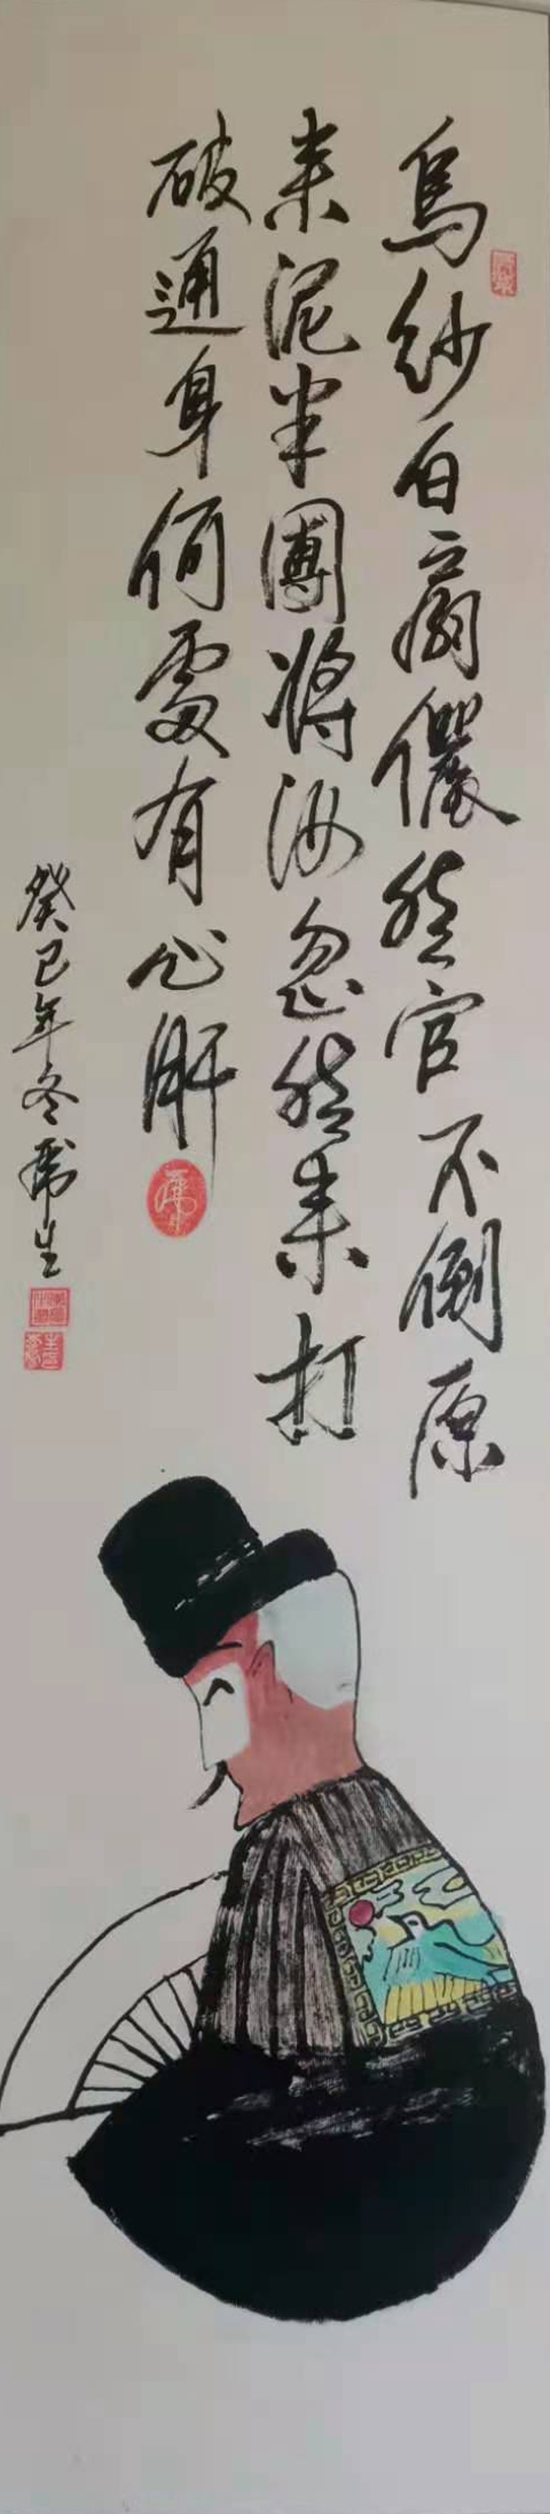 烏紗白扇儼然官不倒原
來泥半團將汝忽然來打
破通身何處有心肝
癸巳年冬